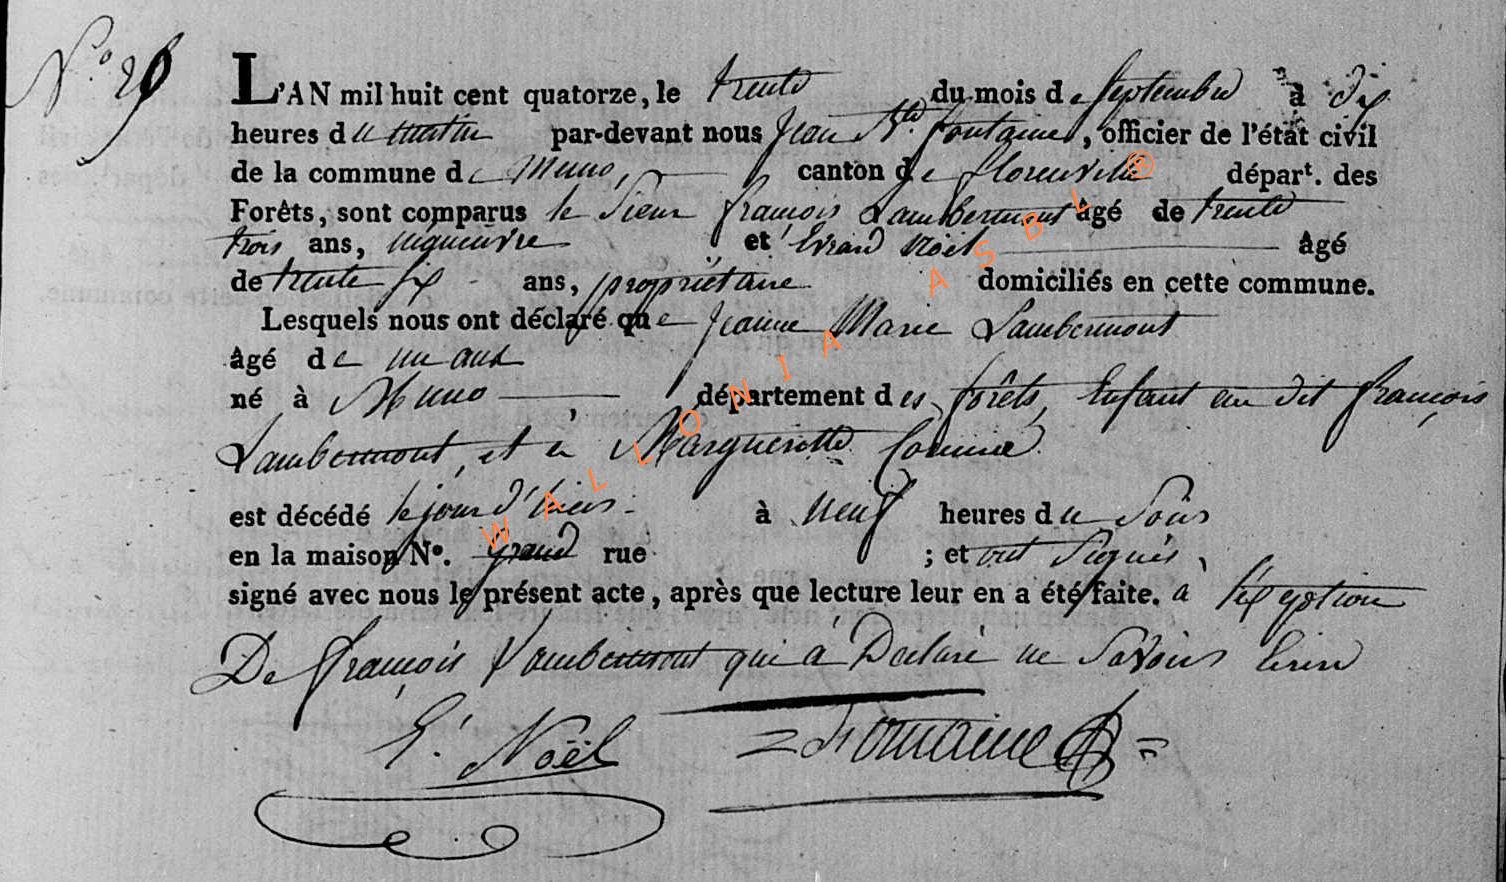 N.° 29
L'AN mil huit cent quatorze, le trente du mois de Septembre à dix
heures du matin par-devant nous Jean Bte. fontaine, officier de l'état civil
de la commune de Muno, canton de florenville départ. des
Forêts, sont comparus le Sieur françois Lambermont âgé de trente
trois ans, et Evrard Noël âgé
de trente six ans, propriétaire domiciliés en cette commune.
Lesquels nous ont déclaré que Jeanne Marie Lambermont
âgé de un ans
né à Muno département des forêts, Enfant au dit françois
Lambermont, et à Margueritte
est décédé le jour d'hier à neuf heures du Soir
en la maison N°. grand rue ; et ont Signés
signé avec nous le présent acte, après que lecture leur en a été faite. à l'exeption
De françois Lambermont qui à Declaré ne Savoir
E. Noël fontaine
WALLONIA ASBL ®